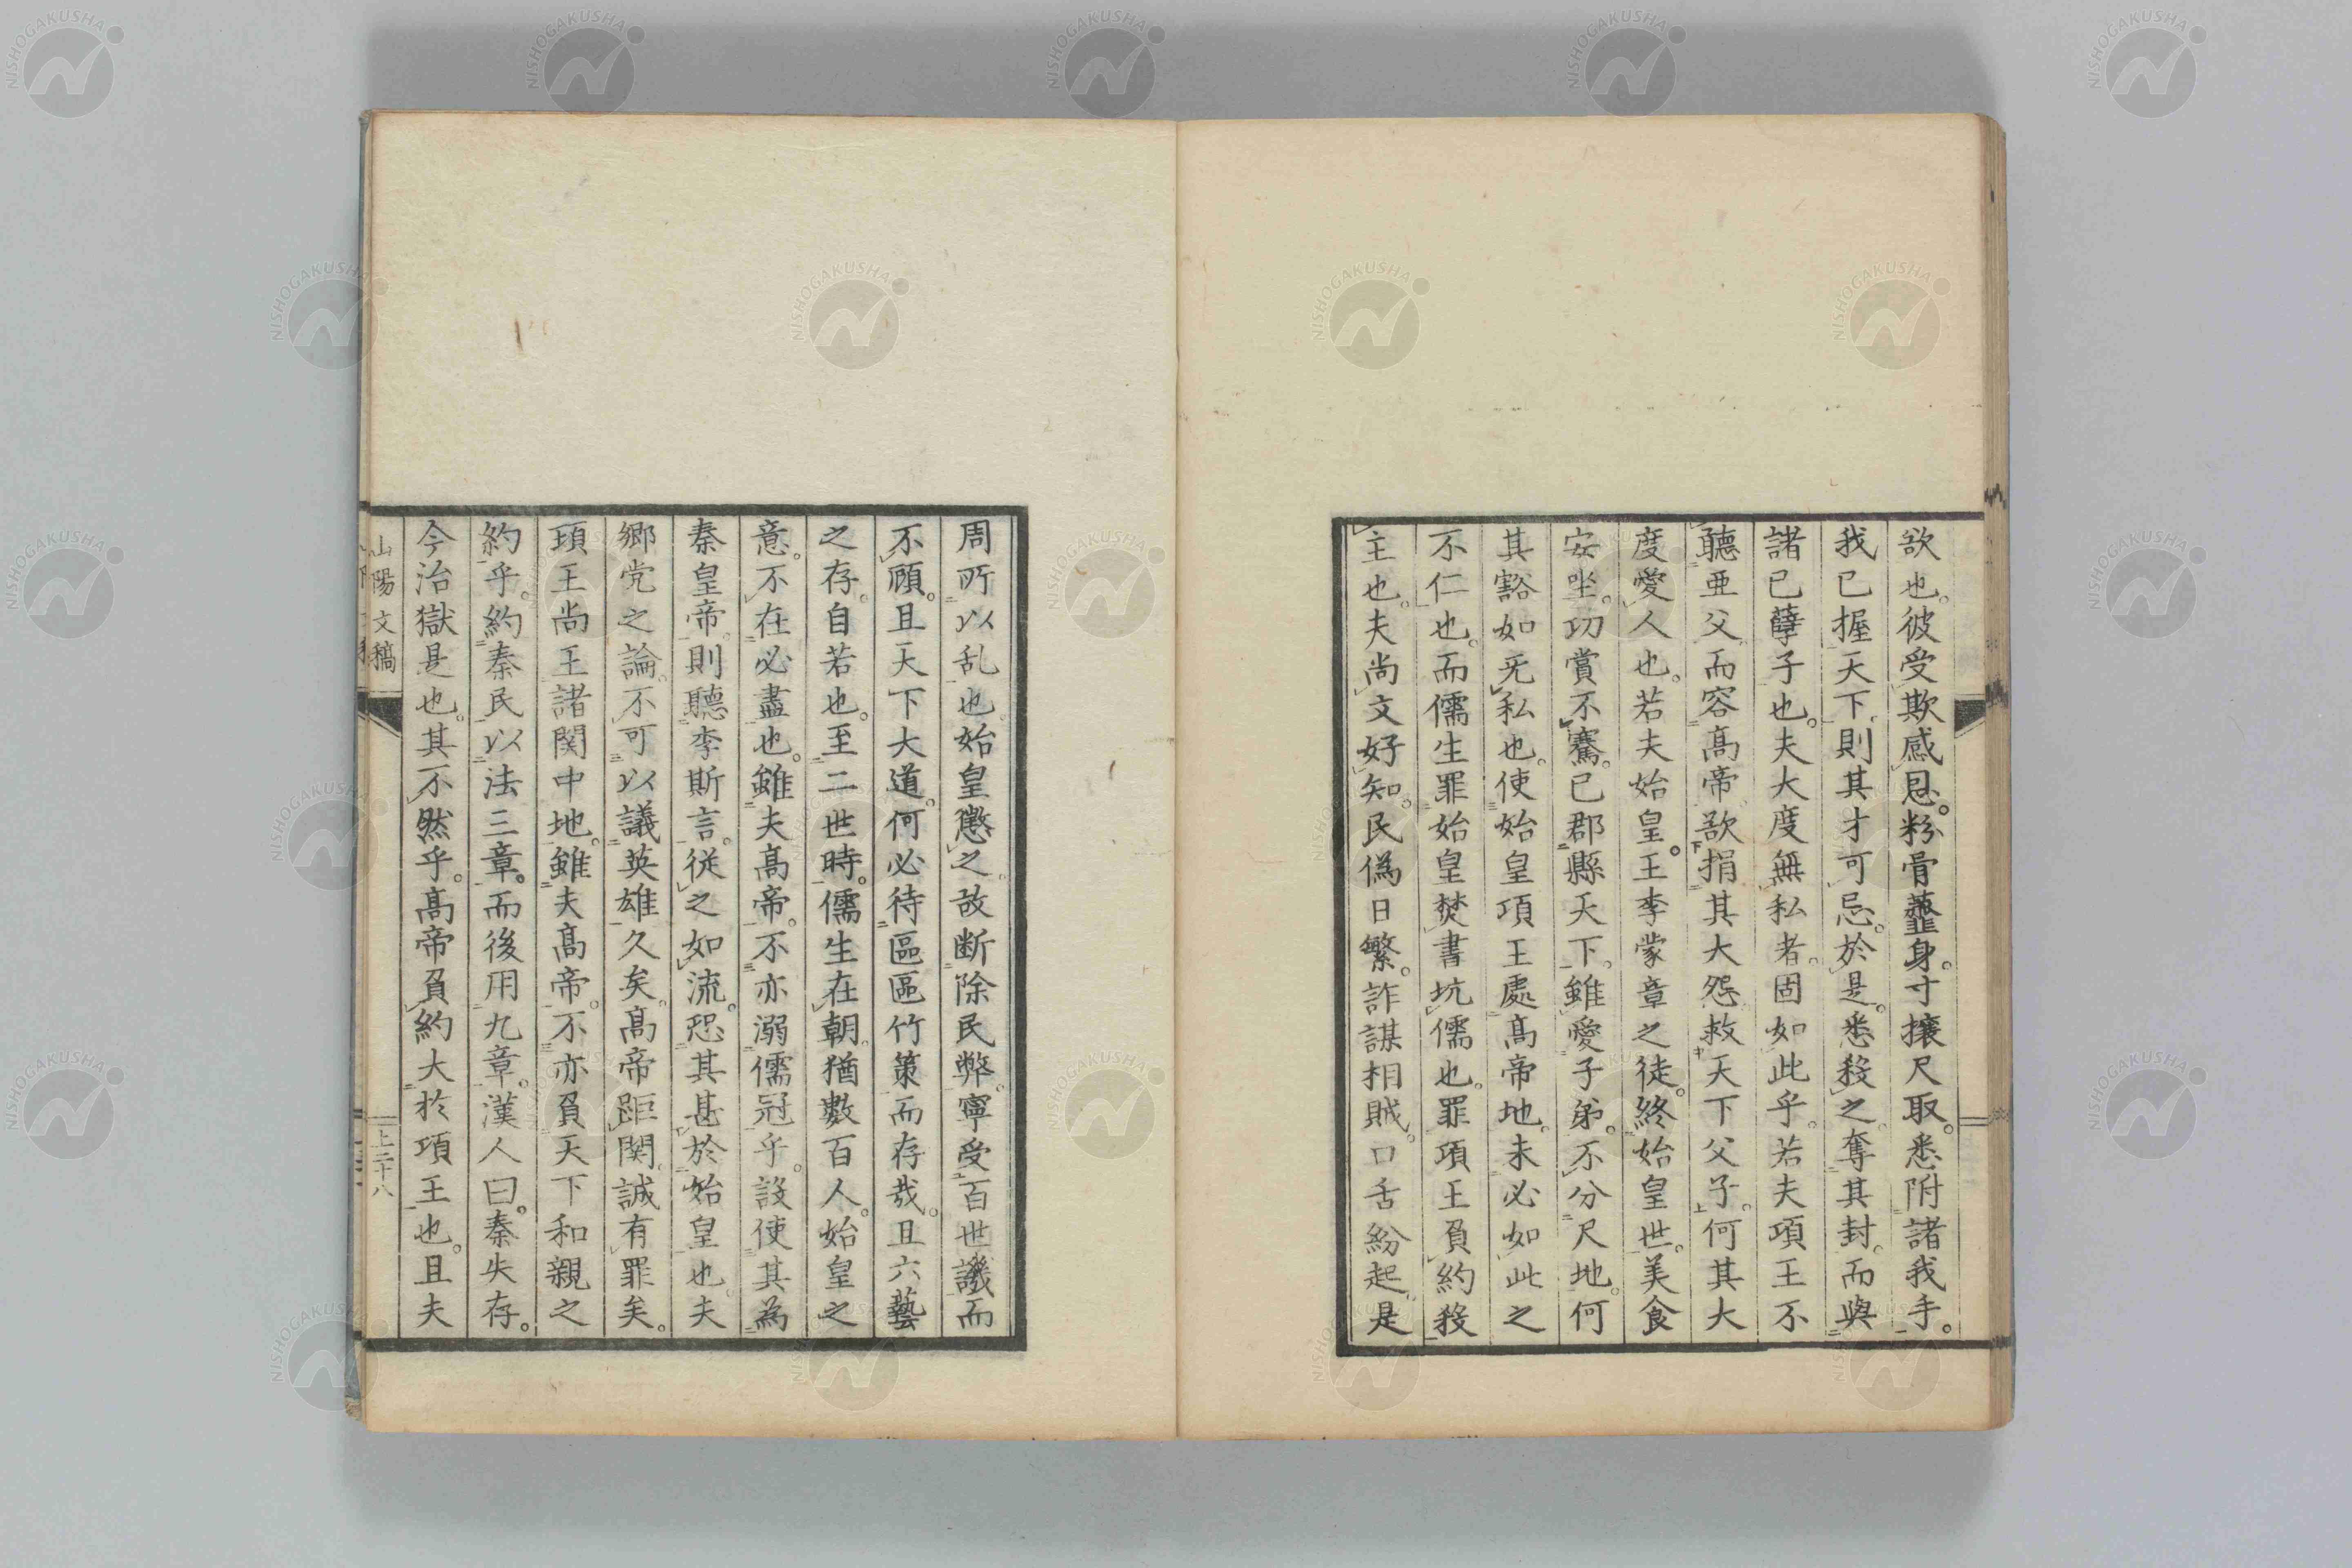 欲也。彼受欺感恩。粉骨虀身。寸攘尺取。悉附諸我手。
我已握天下。則其才可忌。於是。悉殺之奪其封。而與
諸已孽子也。夫大度無私者。固如此乎。若夫項王不
聽亜父。而容髙帝。欲捐其大怨救天下父子。何其大
度愛人也。若夫始皇。王李蒙章之徒。終始皇世。美食
安坐。功賞不騫。已郡縣天下。雖愛子弟。不分尺地。何
其豁如无私也。使始皇項王處髙帝地。未必如此之
不仁也。而儒生罪始皇焚書坑儒也。罪項王負約殺
主也。夫尚文好知。民偽日繁。詐謀相賊。口舌紛起。是
周所以乱也。始皇懲之。故断除民弊。寧受百世譏而
不顧。且天下大道。何必待區區竹策而存哉。且六藝
之存。自若也。至二世時。儒生在朝。猶數百人。始皇之
意。不在必盡也。雖夫髙帝。不亦溺儒冠乎。設使其為
秦皇帝。則聽李斯言。従之如流。恐其甚於始皇也。夫
郷党之論。不可以議英雄久矣。髙帝距関。誠有罪矣。
項王尚王諸関中地。雖夫髙帝。不亦負天下和親之
約乎。約秦民以法三章。而後用九章。漢人曰。秦失存。
今治獄是也。其不然乎。髙帝負約大於項王也。且夫
山陽文稿
上二十八
NISHOGAKUSHA